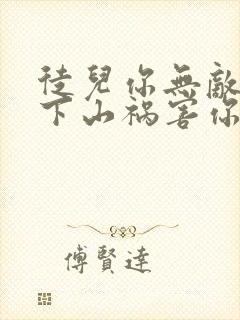 徒兒你無敵
下山禍害你
傅賢達